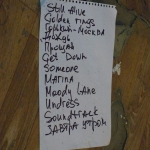 Still Alive
Golden rings
Горький-Москва
Дождь
Прощай
Get Down
Someone
МАГИЛА
Moody Lane
Undress
Soundtrack
ЗАВТРА УТРОМ